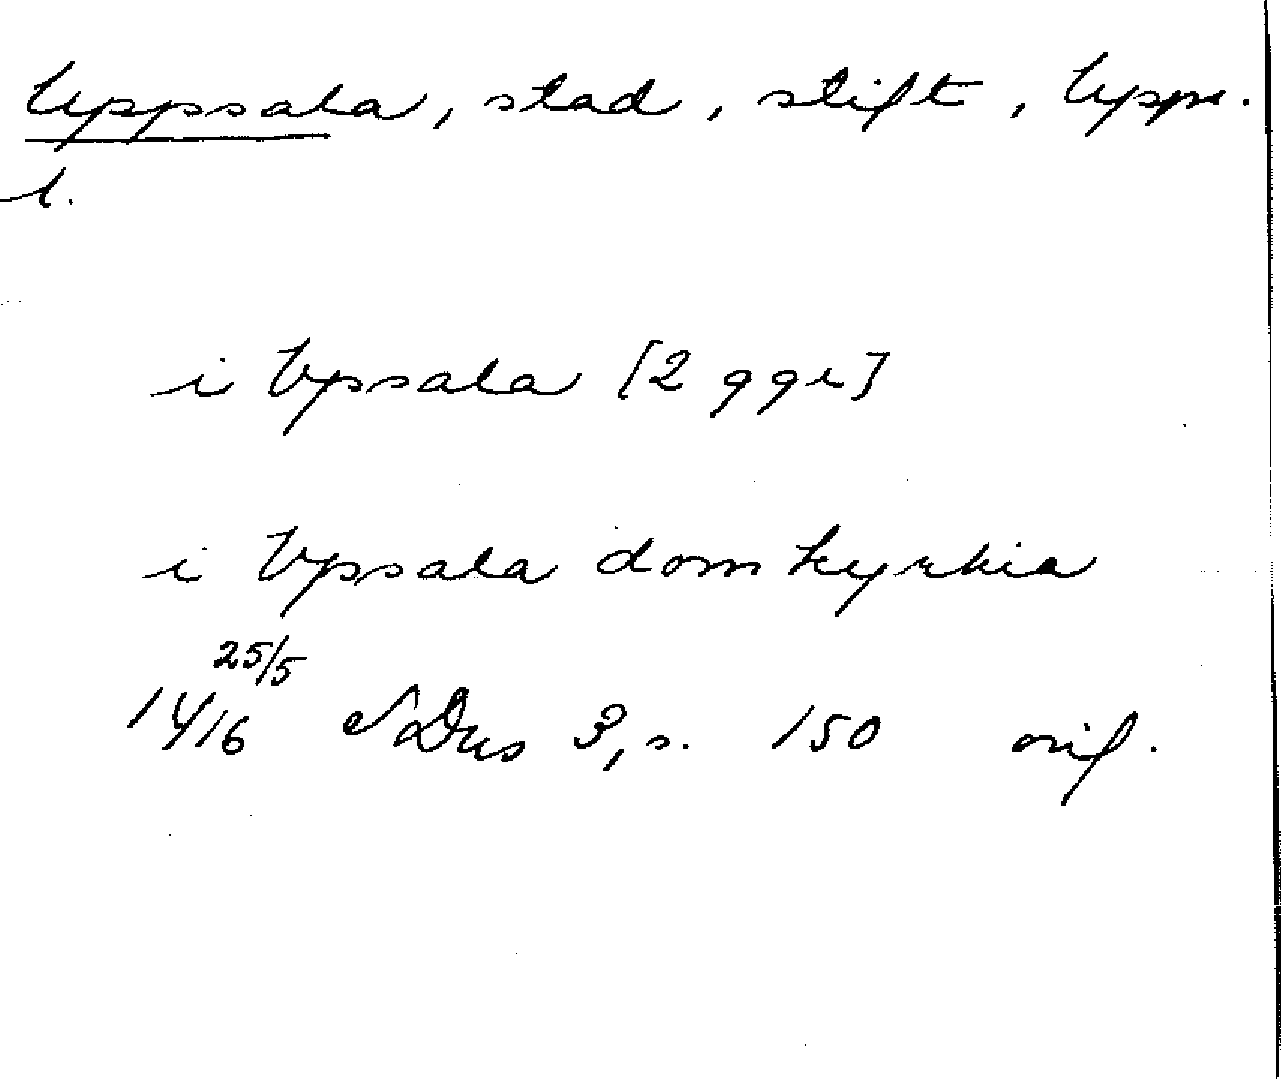 Uppsala, stad, stift, Upps.
l.
i Vpsala [2 ggr]
i Vpsala domkyrkia
25/5
1416 SDns 3, s. 150 orig.